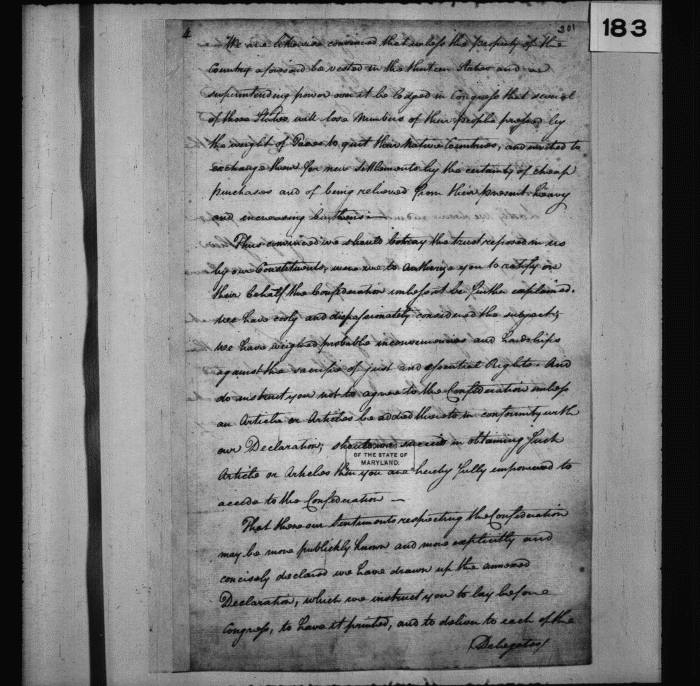 183
4
201
We are likewise convinced that unless the Property of the
Country aforesaid be vested in the thirteen States and a
superintending power over it be lodged in Congress that several
of those States will lose Numbers of their People pressed by
the weight of Taxes to quit their native Countries, and invited to
exchange them for new Settlements by the certainty of cheap
purchases and of being relieved from their present heavy
and increasing burthens.—
Thus convinced we should betray the trust reposed in us
by our Constituents, were we to authorize you to ratify on
their behalf the Confederation unless it be further explained.
we have cooly and dispassionately considered the subject;
we have weighed probable inconveniences and hardships
against the sacrifice of just and essential Rights. And
do instruct you not to agree to the Confederation unless
an Article or Articles be added thereto in conformity with
our Declaration; should we succeed in obtaining such
OF THE STATE OF
MARYLAND.
Article or Articles then you are hereby fully impowered to
accede to the Confederation —
That these our Sentiments respecting the Confederation
may be more publickly known and more explicitly and
concisely declared we have drawn up the annexed
Declaration, which we instruct you to lay before
Congress, to have it printed, and to deliver to each of the
Delegates